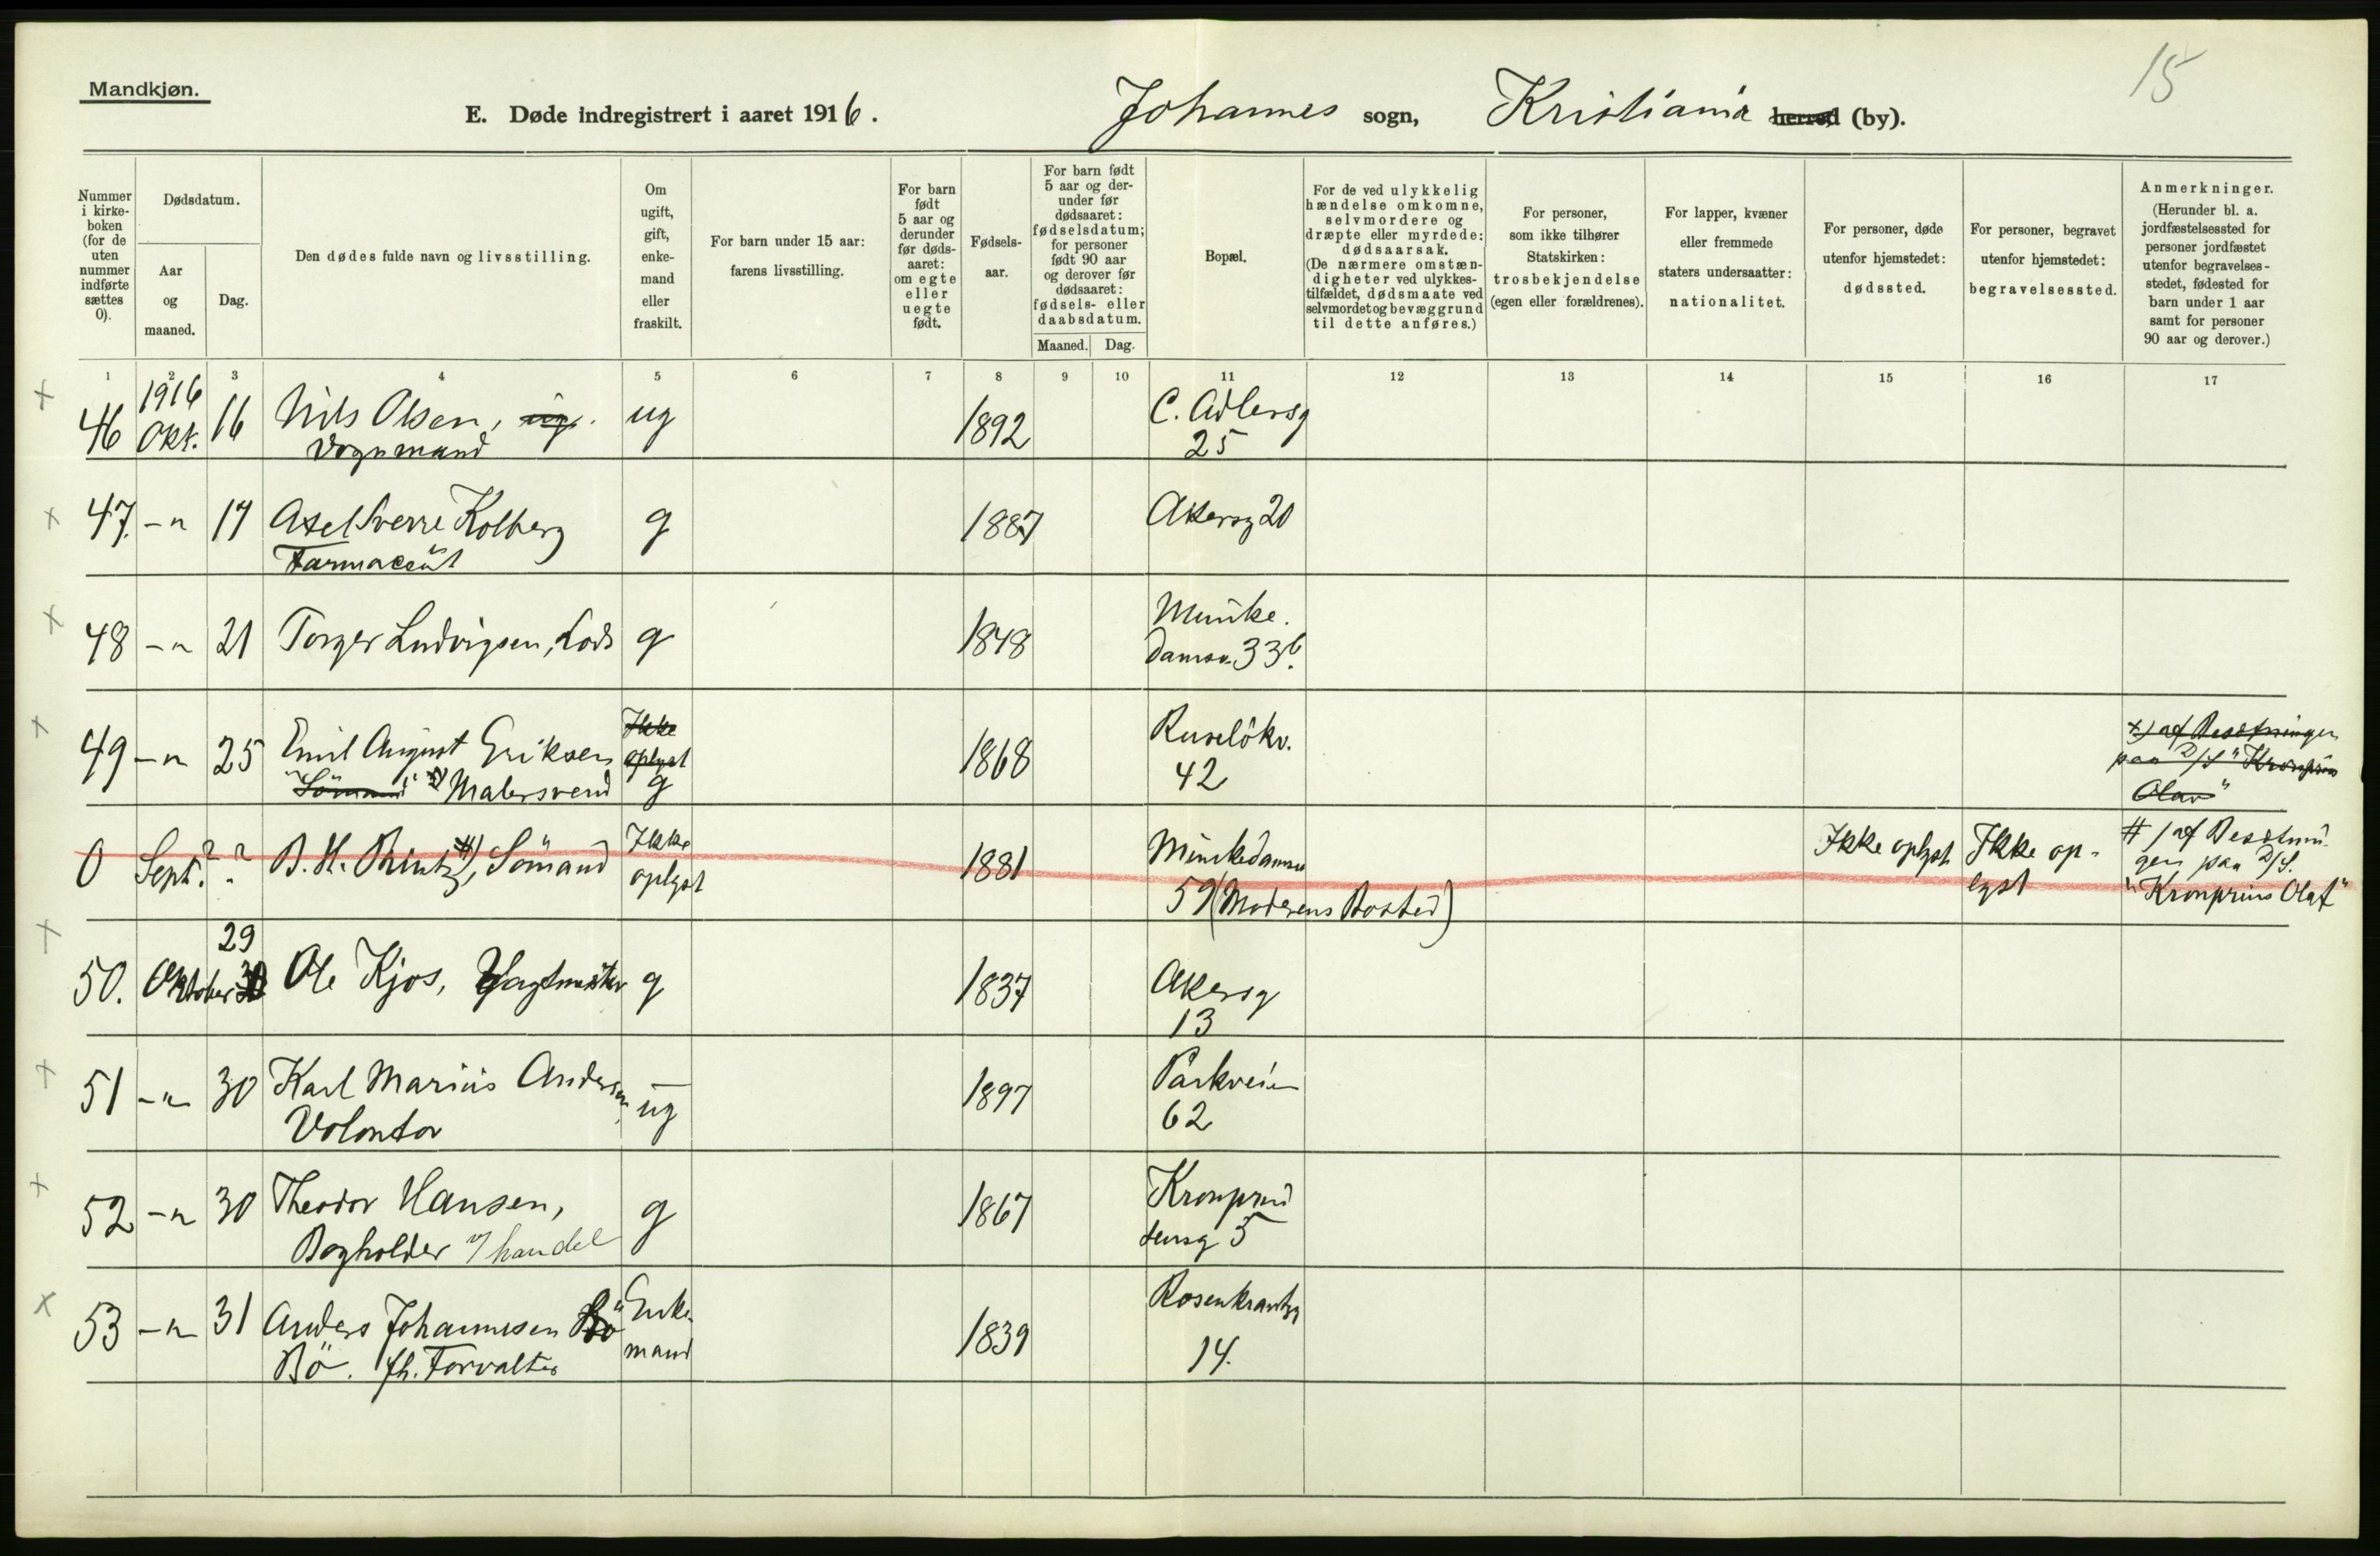 15
Mandkjøn.
E. Døde indregistrert i aaret 1916.
Johannes sogn, Kristiania herred (by).
Nummer i kirke-boken (for de uten nummer indførte sættes 0).
Dødsdatum.
Aar og maaned.
Dag.
Den dødes fulde navn og livsstilling.
Om ugift, gift, enke-mand eller fraskilt.
For barn under 15 aar: farens livsstilling.
For barn født 5 aar og derunder før døds-aaret: om egte eller uegte født.
Fødsels-aar.
For barn født 5 aar og der-under før dødsaaret: fødselsdatum; for personer født 90 aar og derover før dødsaaret: fødsels- eller daabsdatum.
Maaned.
Dag.
Bopæl.
For de ved ulykkelig hændelse omkomne, selvmordere og dræpte eller myrdede: dødsaarsak. (De nærmere omstæn-digheter ved ulykkes-tilfældet, dødsmaate ved selvmord et og bevæggrund til dette anføres.)
For personer, som ikke tilhører Statskirken: trosbekjendelse (egen eller forældrenes).
For lapper, kvæner eller fremmede staters undersaatter: nationalitet.
For personer, døde utenfor hjemstedet: dødssted.
For personer, begravet utenfor hjemstedet: begravelsessted.
Anmerkninger. (Herunder bl. a. jordfæstelsessted for personer jordfæstet utenfor begravelses-stedet, fødested for barn under 1 aar samt for personer 90 aar og derover.)
1 2 3 4 5 6 7 8 9 10 11 12 13 14 15 16 17
1916
46 Okt. 16 Nils Olsen, ug. ug 1892 C. Adlersg
Vognmand 25
47. -"- 17 Axel Sverre Kolberg g 1887 Akersg 20
Farmaceut
48 -"- 21 Torger Ludvigsen, Lods g 1848 Munke.
damsv. 33b.
49 -"- 25 Emil August Eriksen Ikke oplyst 1868 Ruselökv.
Sömand x) Malersvend g 42
x) af Besetningen
paa D/S "Kronprins
Olav"
0 Sept.? ? B. H. Rintz #), Sömand Ikke oplyst 1881 Munkedamsv
59 (Moderens Bosted)
Ikke oplyst Ikke op-
lyst
#) af Besetnin
gen paa D/S.
"Kronprins Olaf"
29
50. Oktober 30 Ole Kjos, Vagtmester g 1837 Akersg
13
51 -"- 30 Karl Marius Andersen ug 1897 Parkveien
Volontør 62
52 -"- 30 Theodor Hansen, g 1867 Kronprin
Bogholder v/handel sensg 5
53 -"- 31 Anders Johannesen Bö Enke- 1839 Rosenkrantzg
Bö. fh. Forvalter mand 14.